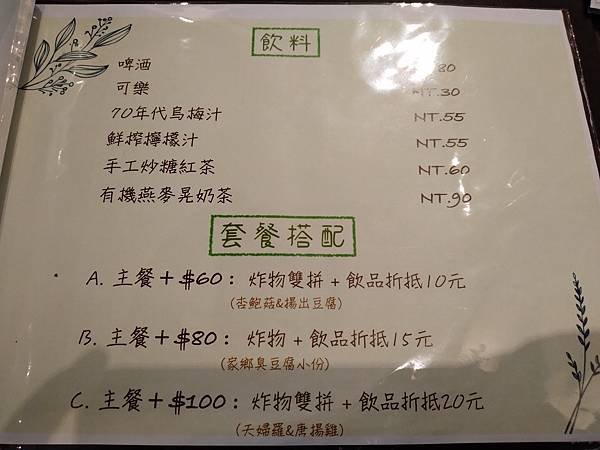 飲料
啤酒 80
可樂 NT.30
70年代烏梅汁 NT.55
鮮榨檸檬汁 NT.55
手工炒糖紅茶 NT.60
有機燕麥晃奶茶 NT.90
套餐搭配
A. 主餐+$60: 炸物雙拼 + 飲品折抵10元
(杏鮑菇&揚出豆腐)
B. 主餐+$80: 炸物 + 飲品折抵15元
(家鄉臭豆腐小份)
C. 主餐+$100: 炸物雙拼 + 飲品折抵20元
(天婦羅&唐揚雞)